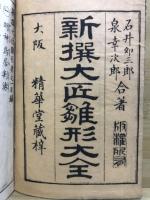 石井卯三郎
泉幸次郎
合著
新撰大匠雛形大全
大阪 精華堂藏梓